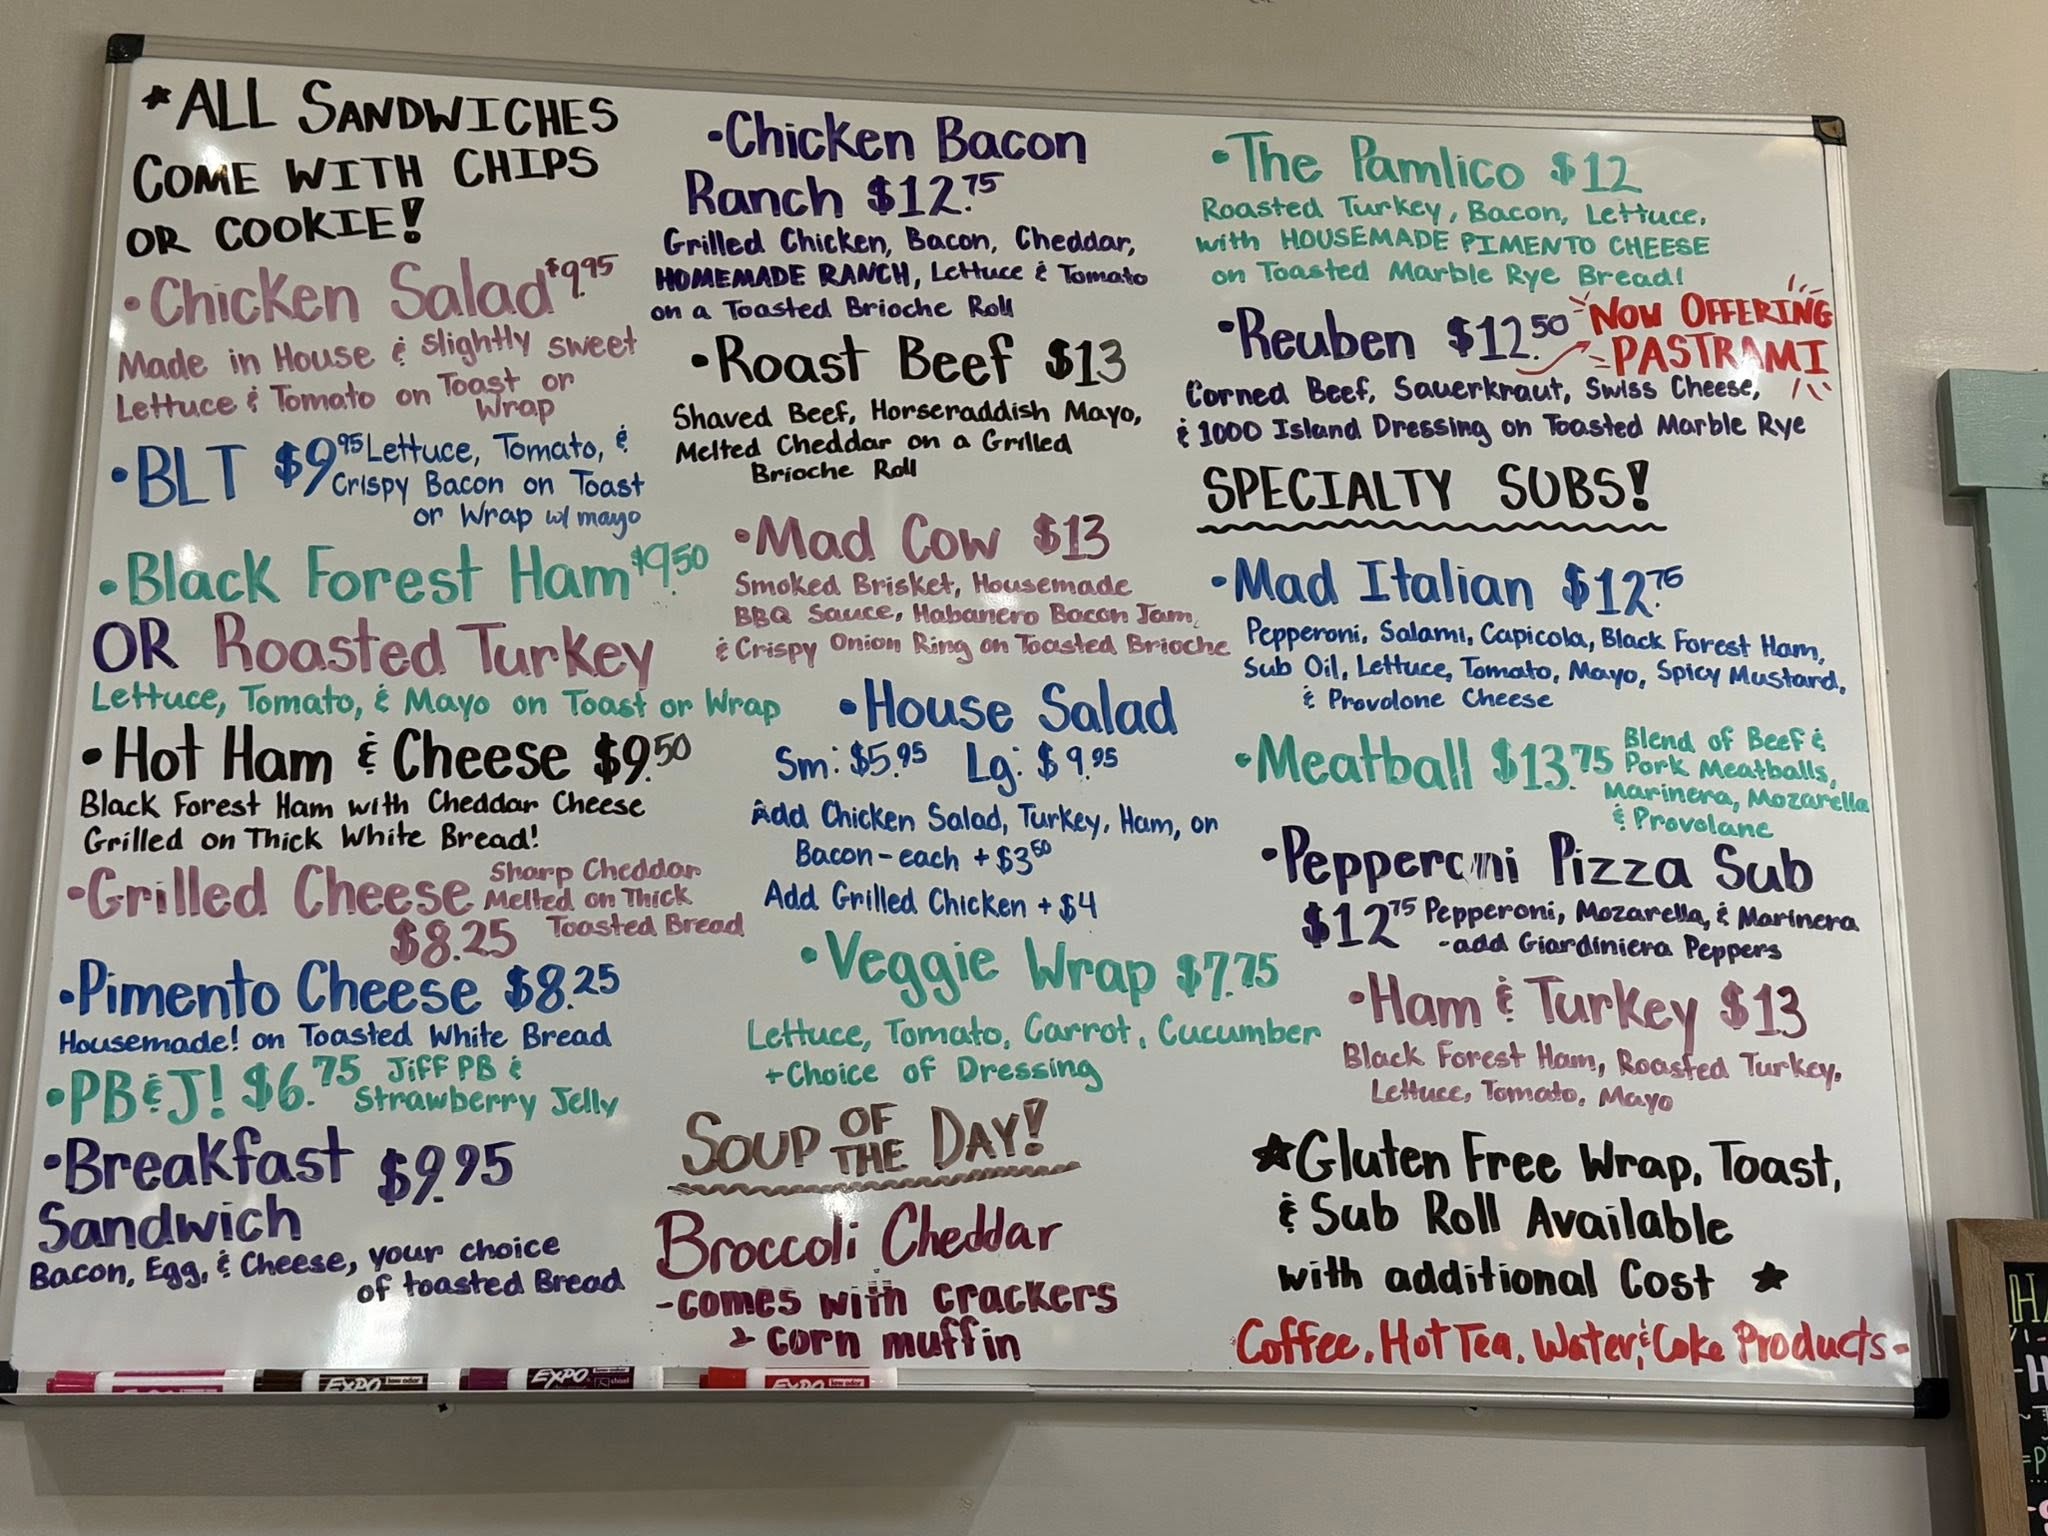 ★ALL SANDWICHES
COME WITH CHIPS
OR COOKIE!
•Chicken Salad $9.95
Made in House & slightly sweet
Lettuce & Tomato on Toast or
Wrap
•BLT $9.95 Lettuce, Tomato, &
Crispy Bacon on Toast
or Wrap w/ mayo
•Black Forest Ham $9.50
OR Roasted Turkey
Lettuce, Tomato, & Mayo on Toast or Wrap
•Hot Ham & Cheese $9.50
Black Forest Ham with Cheddar Cheese
Grilled on Thick White Bread!
•Grilled Cheese Sharp Cheddar
Melted on Thick
$8.25 Toasted Bread
•Pimento Cheese $8.25
Housemade! on Toasted White Bread
•PB&J! $6.75 Jiff PB &
Strawberry Jelly
•Breakfast $9.95
Sandwich
Bacon, Egg, & Cheese, your choice
of toasted Bread
•Chicken Bacon
Ranch $12.75
Grilled Chicken, Bacon, Cheddar,
HOMEMADE RANCH, Lettuce & Tomato
on a Toasted Brioche Roll
•Roast Beef $13
Shaved Beef, Horseraddish Mayo,
Melted Cheddar on a Grilled
Brioche Roll
•Mad Cow $13
Smoked Brisket, Housemade
BBQ Sauce, Habanero Bacon Jam,
& Crispy Onion Ring on Toasted Brioche
•House Salad
Sm: $5.95 Lg: $9.95
Add Chicken Salad, Turkey, Ham, or
Bacon - each + $3.50
Add Grilled Chicken + $4
•Veggie Wrap $7.75
Lettuce, Tomato, Carrot, Cucumber
+Choice of Dressing
SOUP OF THE DAY!
Broccoli Cheddar
-comes with crackers
& corn muffin
•The Pamlico $12
Roasted Turkey, Bacon, Lettuce,
with HOUSEMADE PIMENTO CHEESE
on Toasted Marble Rye Bread!
•Reuben $12.50 NOW OFFERING
PASTRAMI
Corned Beef, Sauerkraut, Swiss Cheese,
& 1000 Island Dressing on Toasted Marble Rye
SPECIALTY SUBS!
•Mad Italian $12.75
Pepperoni, Salami, Capicola, Black Forest Ham,
Sub Oil, Lettuce, Tomato, Mayo, Spicy Mustard,
& Provolone Cheese
•Meatball $13.75 Blend of Beef &
Pork Meatballs,
Marinera, Mozarella
& Provolane
•Pepperoni Pizza Sub
$12.75 Pepperoni, Mozarella, & Marinera
-add Giardiniera Peppers
•Ham & Turkey $13
Black Forest Ham, Roasted Turkey,
Lettuce, Tomato, Mayo
★Gluten Free Wrap, Toast,
& Sub Roll Available
with additional Cost ★
Coffee, Hot Tea, Water, & Coke Products-
EXPO low odor
EXPO chisel
EXPO low odor